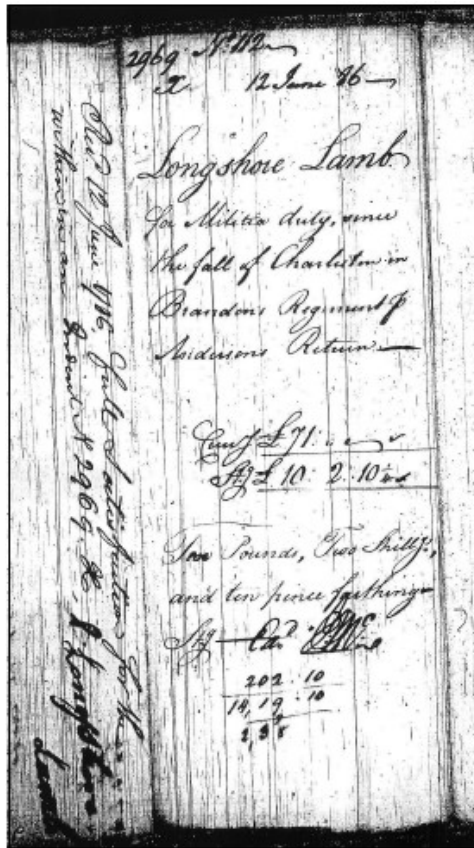 2969 No 112
X 12 June 86
Longshore Lamb
for Militia duty, since
the fall of Charleston in
Brandons Regiment p
Andersons Return
Curr.y £ 71
Stg £ 10 2 10
Ten Pounds, Two Shillgs,
and ten pence farthing
Stg
202 10
14,19 10
Rec.d 12 June 1786, full Satisfaction for the
within in an Indent No 2969. X, Longshore
Lamb